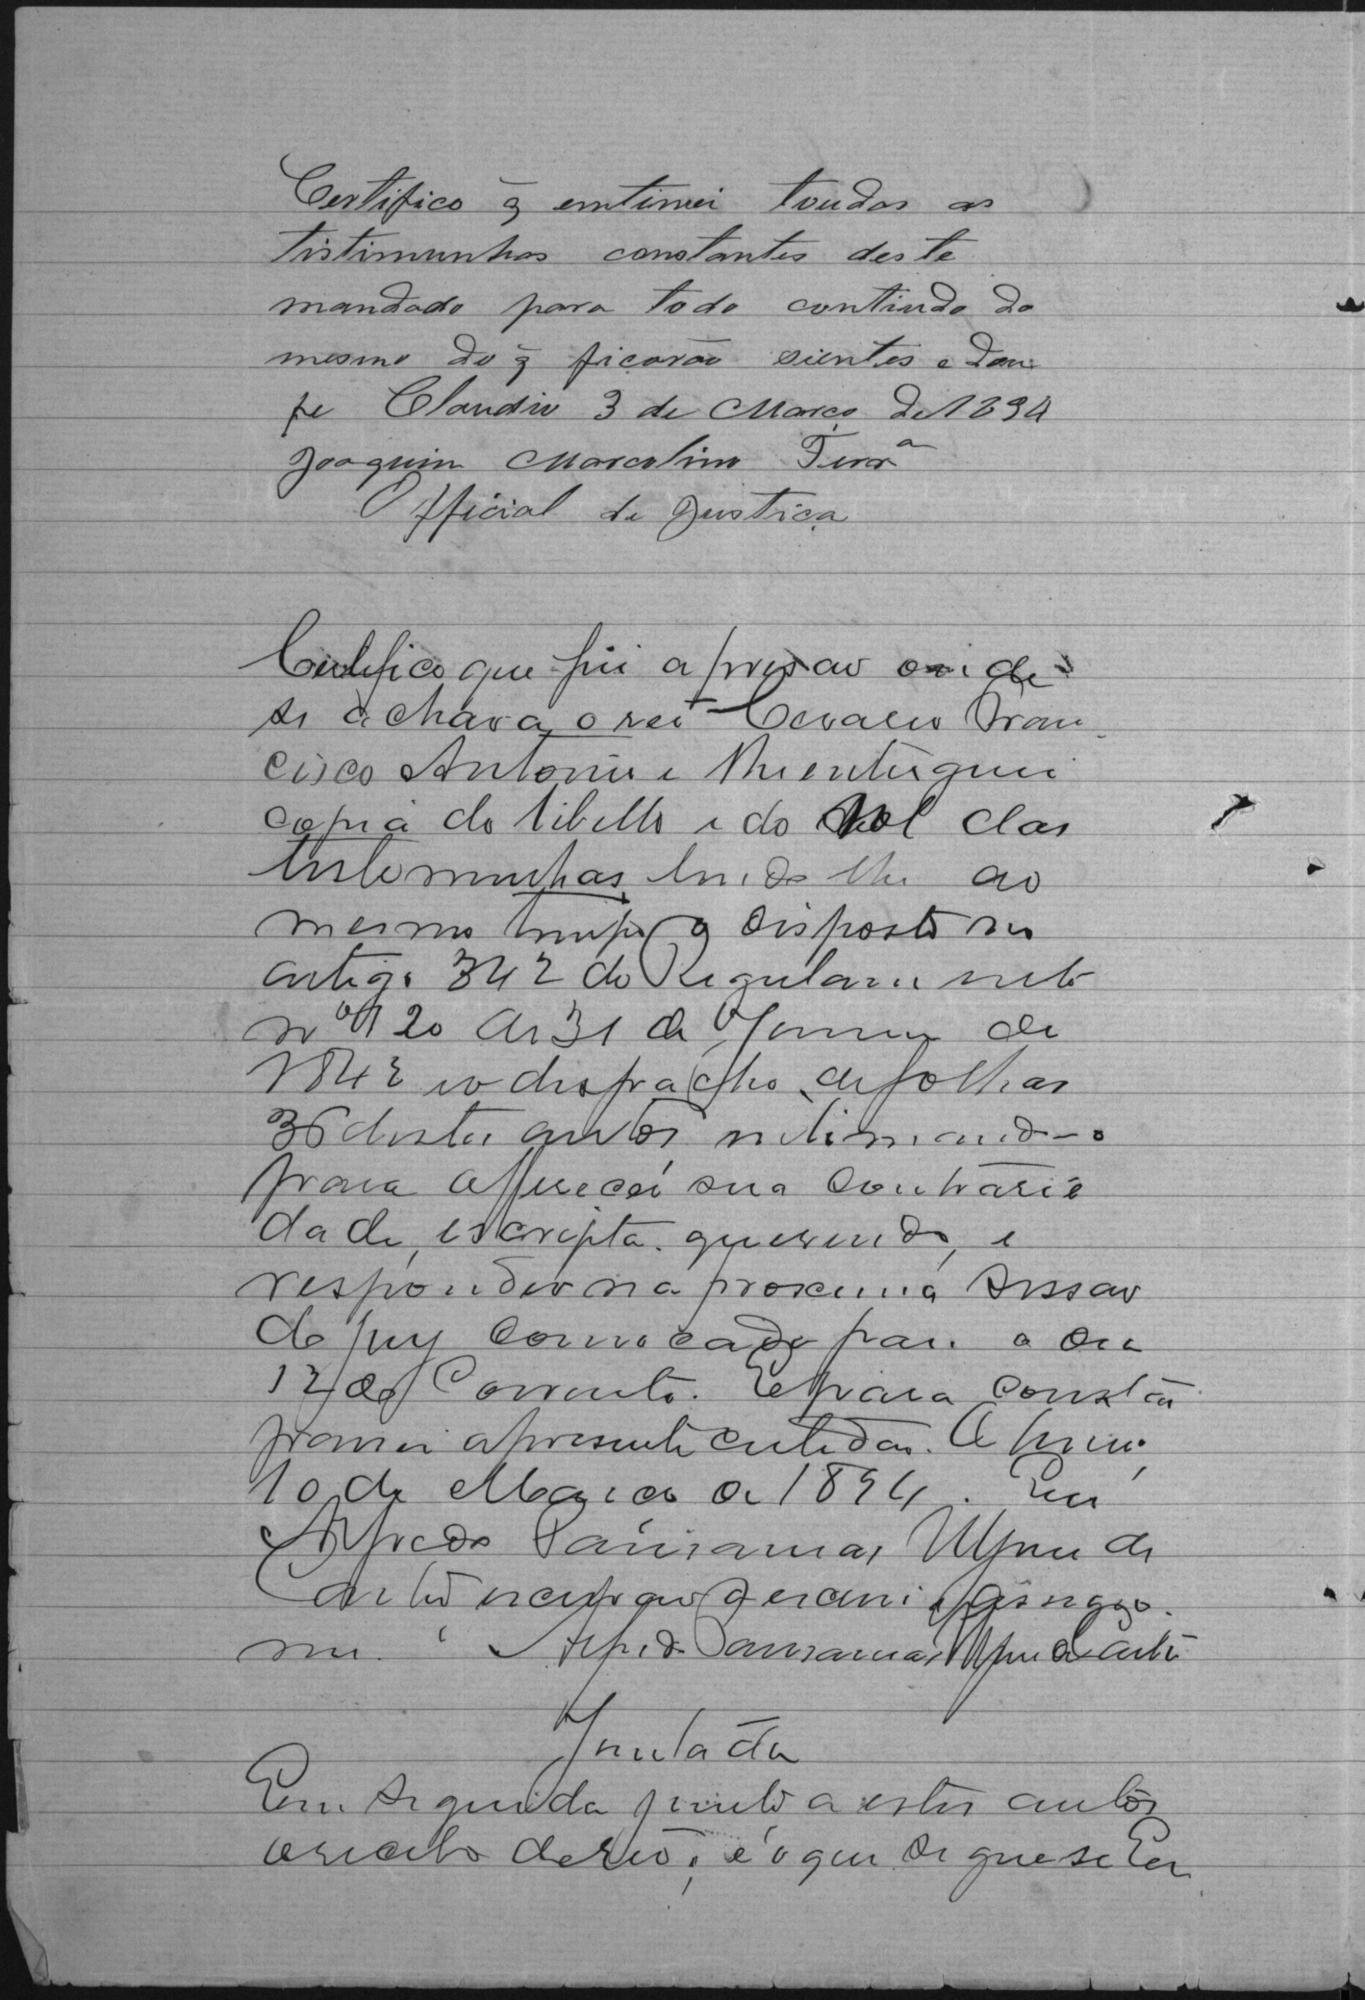 Certifico q̃ emtimei toudas as
tistimunhas constantes deste
mandado para todo contiudo do
mesmo do q̃ ficarão sientes e dou
fe Claudio 3 de Março de 1894
Joaquim Marcolino Ferrª
Official de Justiça
Certifico que fui a prisão onde
se achava o reo Cesario Fran
cisco Antonio e lhe entreguei
copia do libello e do rol das
testemunhas lendo lhe ao
mesmo tempo o disposto no
artigo 342 do Regulamento
nº 120 de 31 de Janeiro de
1842 e o despacho de folhas
36 destes autos intimando-o
para offerecer sua contrarie
dade, escripta querendo, e
responder na proxima sessão
do jury convocado para o dia
12 do Corrente. E para constar
passei a presente certidão.
10 de Março de 1894. Eu
Alfredo
escrivão
Juntada
Em seguida junto a estes autos
o recibo do reo; é o que segue se Eu